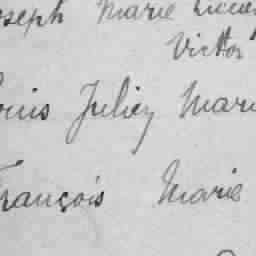 Joseph Marie
Victor
Louis Julien Marie
François Marie